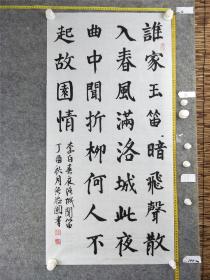 誰家玉笛暗飛聲散
入春風滿洛城此夜
曲中聞折柳何人不
起故園情
李白春夜洛城聞笛
丁酉秋月
書